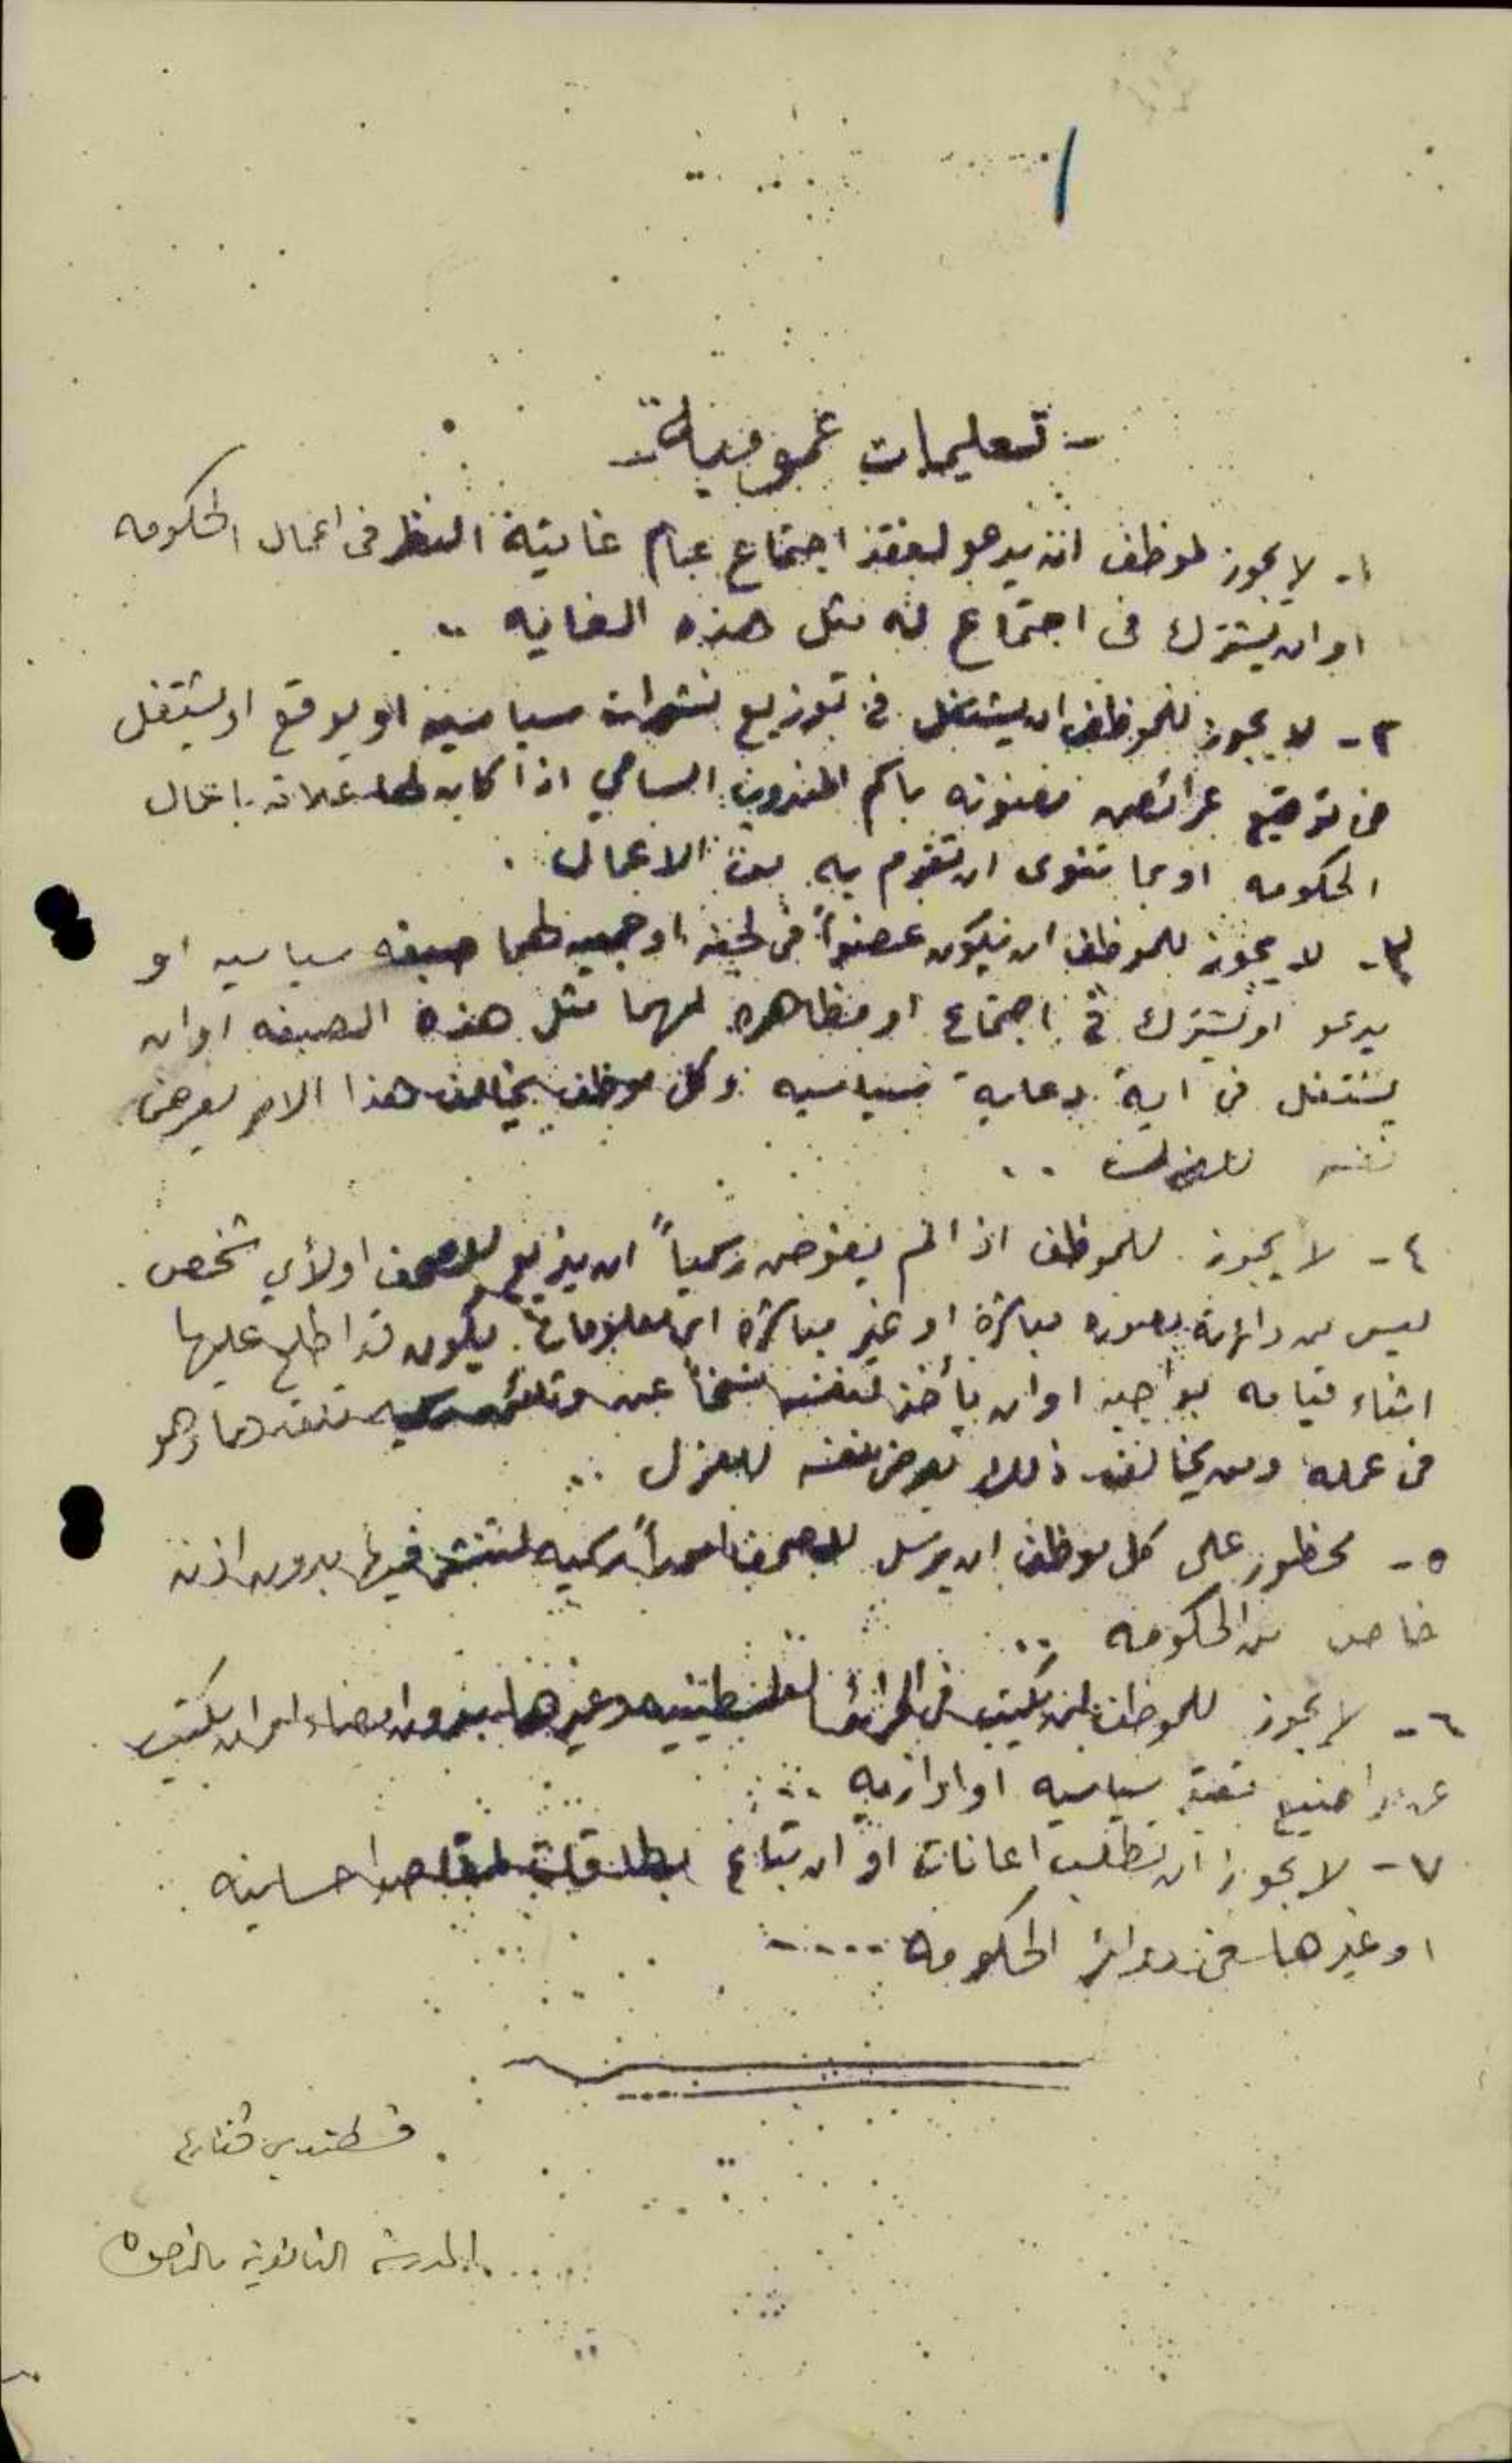 ١
- تعليمات عمومية -
١- لا يجوز لموظف ان يدعو لعقد اجتماع عام غايته النظر فى اعمال الحكومه
او ان يشترك فى اجتماع له مثل هذه الغايه ..
٢- لا يجوز للموظف ان يشتغل فى توزيع نشرات سياسيه او يوقع او يشتغل
فى توقيع عرائض معنونه باسم المندوب السامي اذا كان لها علاقه باعمال
الحكومه او بما تنوى ان تقوم به من الاعمال .
٣- لا يجوز للموظف ان يكون عضواً فى لجنه او جمعيه لهما صبغه سياسيه او
يدعو او يشترك فى اجتماع او مظاهره لهما مثل هذه الصبغه او ان
يشتغل فى اية دعاية سياسيه وكل موظف يخالف هذا الامر يعرض
نفسه للعزل ..
٤- لا يجوز للموظف اذا لم يفوض رسمياً ان يذيع للصحف او لأي شخص
ليس من دائرته بصوره مباشرة او غير مباشرة اى معلومات يكون قد اطلع عليها
اثناء قيامه بواجبه او ان يأخذ لنفسه نسخاً عن وثائق رسميه نفذها وهو
فى عمله ومن يخالف ذلك يعرض نفسه للعزل ..
٥- محظور على كل موظف ان يرسل للصحف اموراً رسميه لتنشر فيها بدون اذن
خاص من الحكومه ..
٦- لا يجوز للموظف ان يكتب فى الجرائد الفلسطينيه وغيرها بدون امضاء او ان يكتب
عن مواضيع سياسيه او اداريه ..
٧- لا يجوز ان تطلب اعانات او ان تباع بطاقات لمقاصد احسانيه
او غيرها فى دوائر الحكومه ....
قسطندي قنازع
المدرسة الثانوية بالناصره